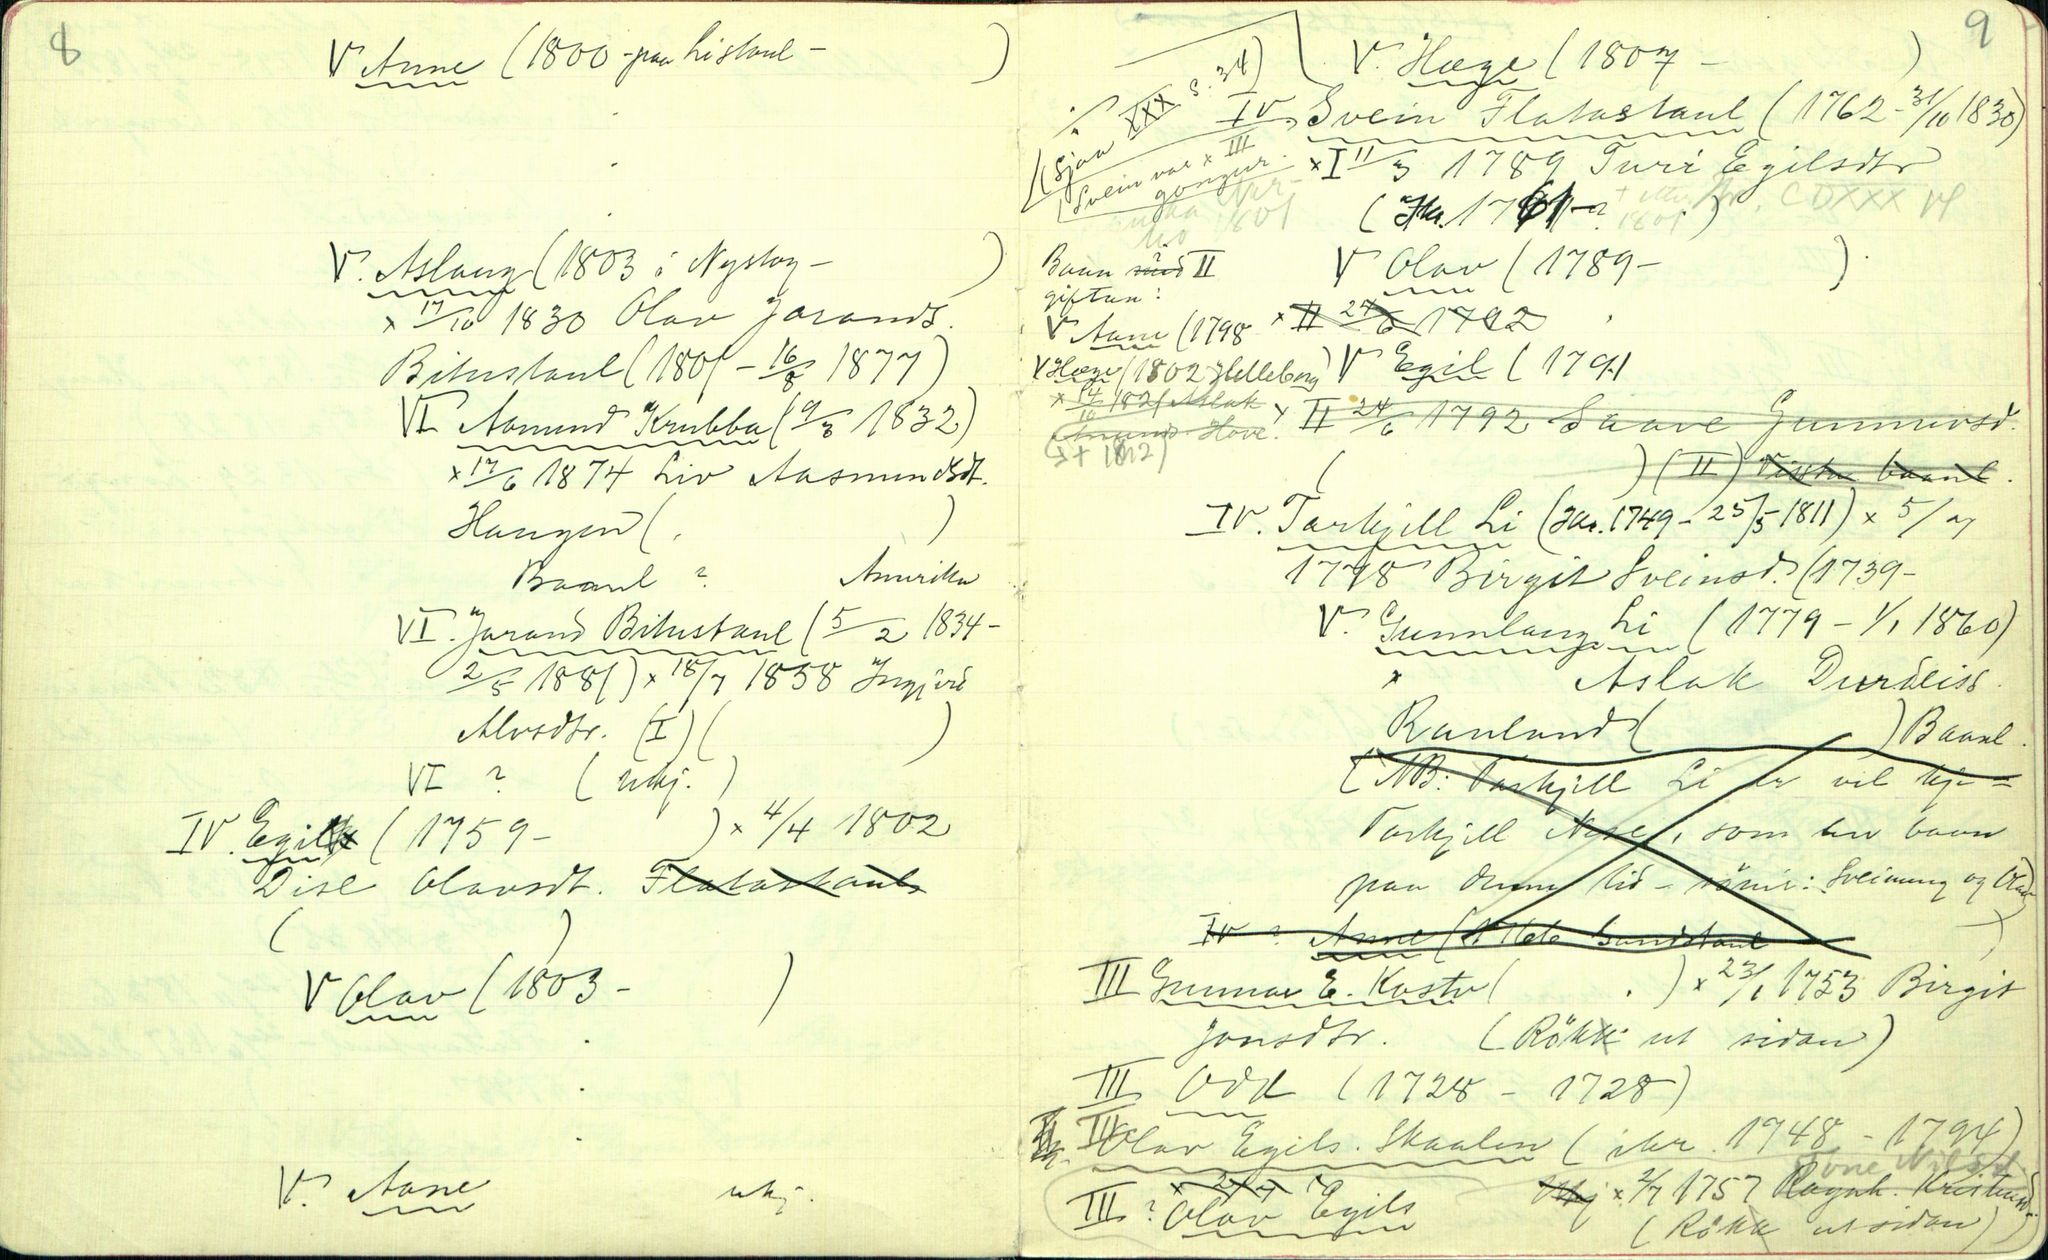 8
V Anne (1800 - paa Listaul - )
V. Aslaug (1803 i Nystog - )
x 17/10 1830 Olav Jarands.
Bitustaul (1801 - 16/8 1877)
VI Aamund Krubba (9/3 1832)
x 17/6 1874 Liv Aasmundsdt.
Haugen ( )
Baanl ? Amerika
VI. Jarand Bitustaul (5/2 1834 -
2/5 1881) x 18/7 1858 Ingjerd
Alvsdtr. (I) ( )
VI ? (ukj.)
IV. Egil (1759 - ) x 4/4 1802
Disl Olavsdt. Flatastaul
( )
V Olav (1803 - )
V. Aane ukj.
9
V. Hæge (1807 - )
(Sjaa XXX s. 34)
IV Svein Flatastaul (1762 - 31/10 1830)
(Svein var x III
gongur.
x I 11/3 1789 Turi Egilsdtr
(Ikr. 1761 - ? )
CDXXX
1801
Baan med II
giftun:
V Olav (1789 - )
V Aane (1798
x II 24/6 1792
V Hæge (1802 Helleberg)
V Egil (1791
x 14/10 1821 Aslak
Hove.
x II 24/6 1792 Saave Gunnarsd.
( ) (II) Visstn baanl.
IV. Tarkjell Li (Ikr. 1749 - 25/5 1811) x 5/7
1778 Birgit Sveinsd. (1739 -
V. Gunnlaug Li (1779 - 1/1 1860)
x Aslak
Rauland ( ) Baanl.
(NB: Tarkjell Li er vel
Tarkjell som er baan
paa denne tid - sönir: Sveinung og Olav)
IV ? Anne
III Gunnar E. Kostv ( . ) x 23/1 1753 Birgit
Jonsdtr. (Rökk ut sidan)
III Odd (1728 - 1728)
III Olav Egils. Skaalen (ikr. 1748 - 1794)
Tone
III ? Olav Egils x 2/7 1757 Ragnh. Kristensd.
(Rökk ut sidan)